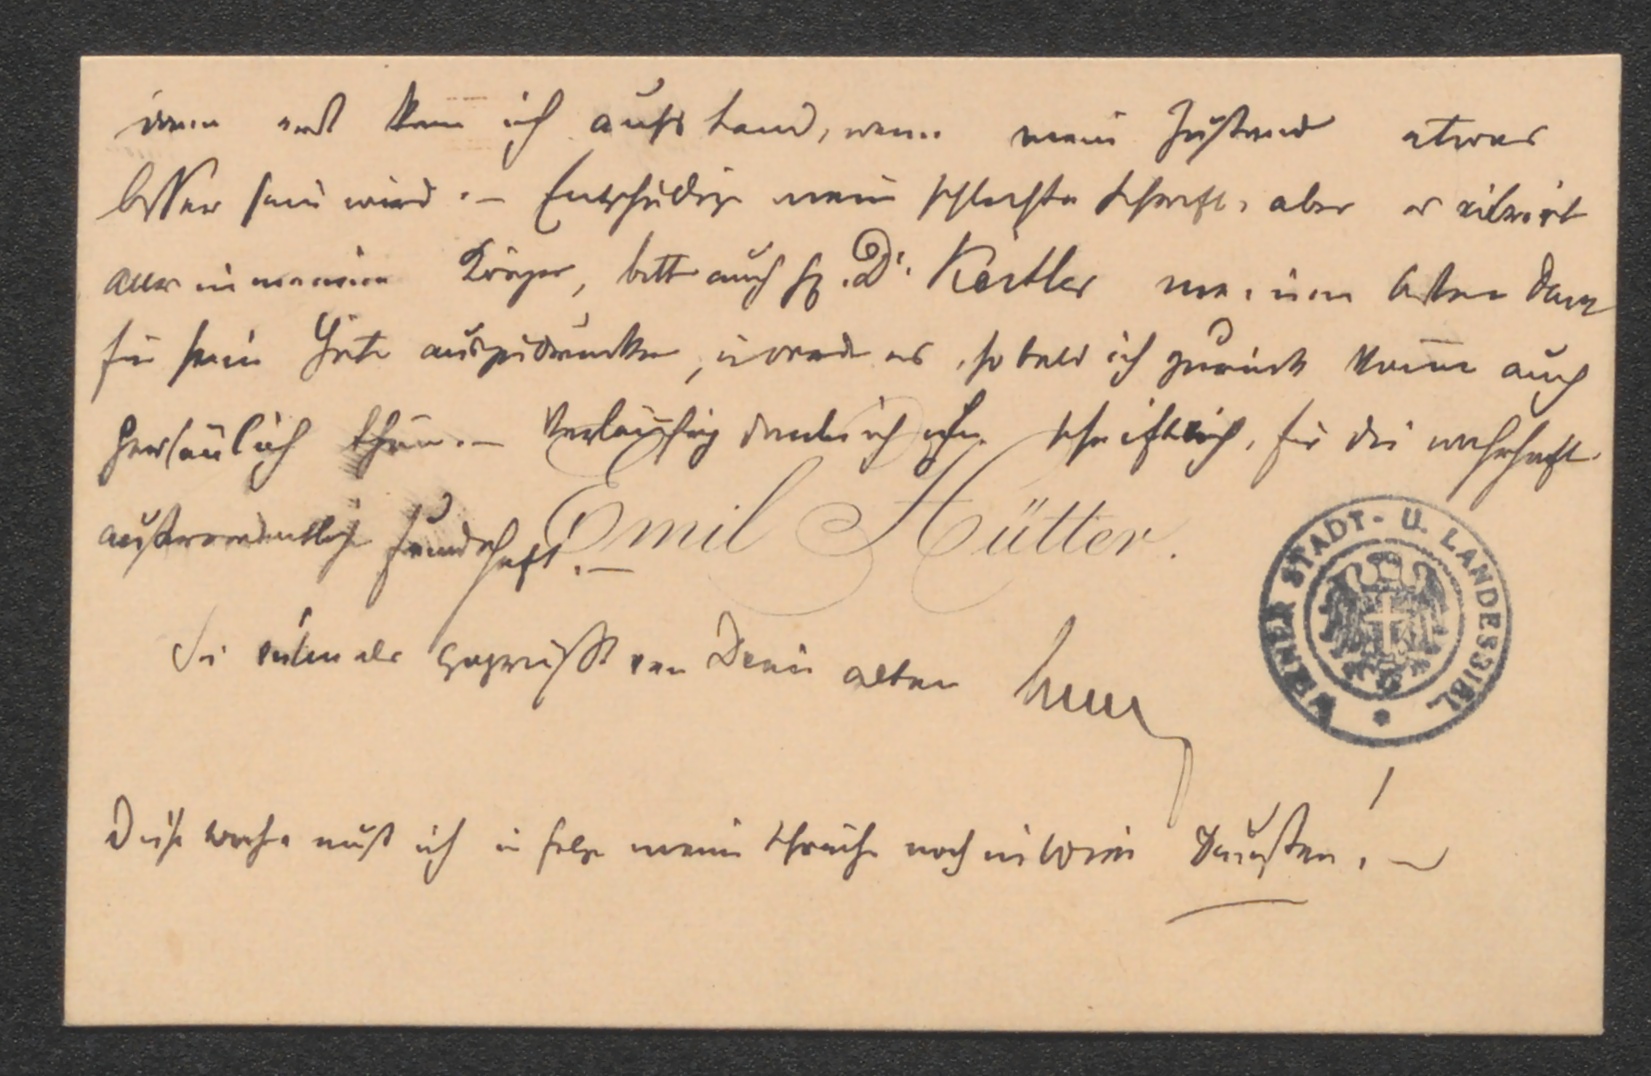 dann erst kann ich aufs Land, wenn mein Zustand etwas
besser sein wird. – Entschuldige mein schlechte Schrift, aber es vibrirt
alles in meinem Körper, bitte auch H. Dr. meinen besten Dank
für seine Güte auszudrücken, ich werde es, sobald ich zurück komme auch
persönlich thun. – Vorläufig danke ich ihm schriftlich, für die wahrhaft
außerordentliche Freundschaft. –
Emil Hütter.
Sei vielmals gegrüßt von Deinem alten
Diese Woche muß ich in Folge meiner Schwäche noch in Wien! –
WIENER STADT- U. LANDESBIBL.